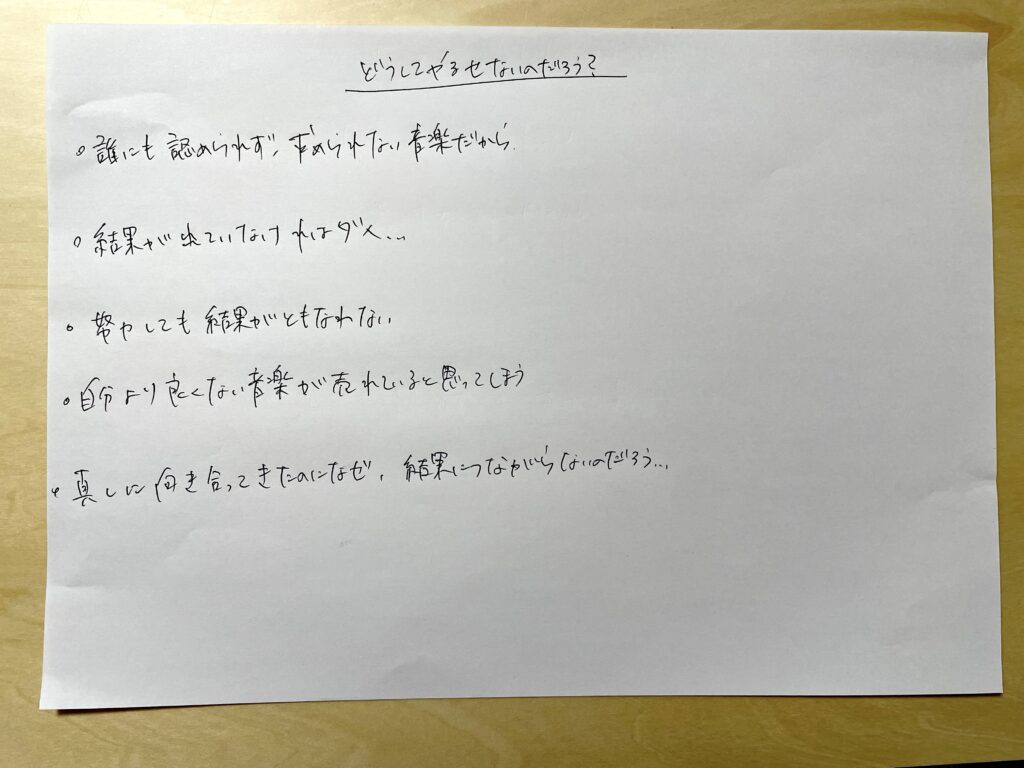 どうしてやるせないのだろう?
○誰にも認められず、求められない音楽だから.
○結果が出ていなければダメ...
○努力しても結果がともなわない
○自分より良くない音楽が売れていると思ってしまう
○真しに向き合ってきたのになぜ、結果につながらないのだろう...